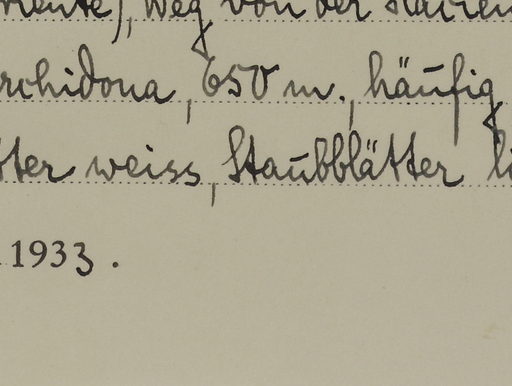 riente), Weg von der
rchidona, 650 m., häufig
tter weiss, Staubblätter li
1933.